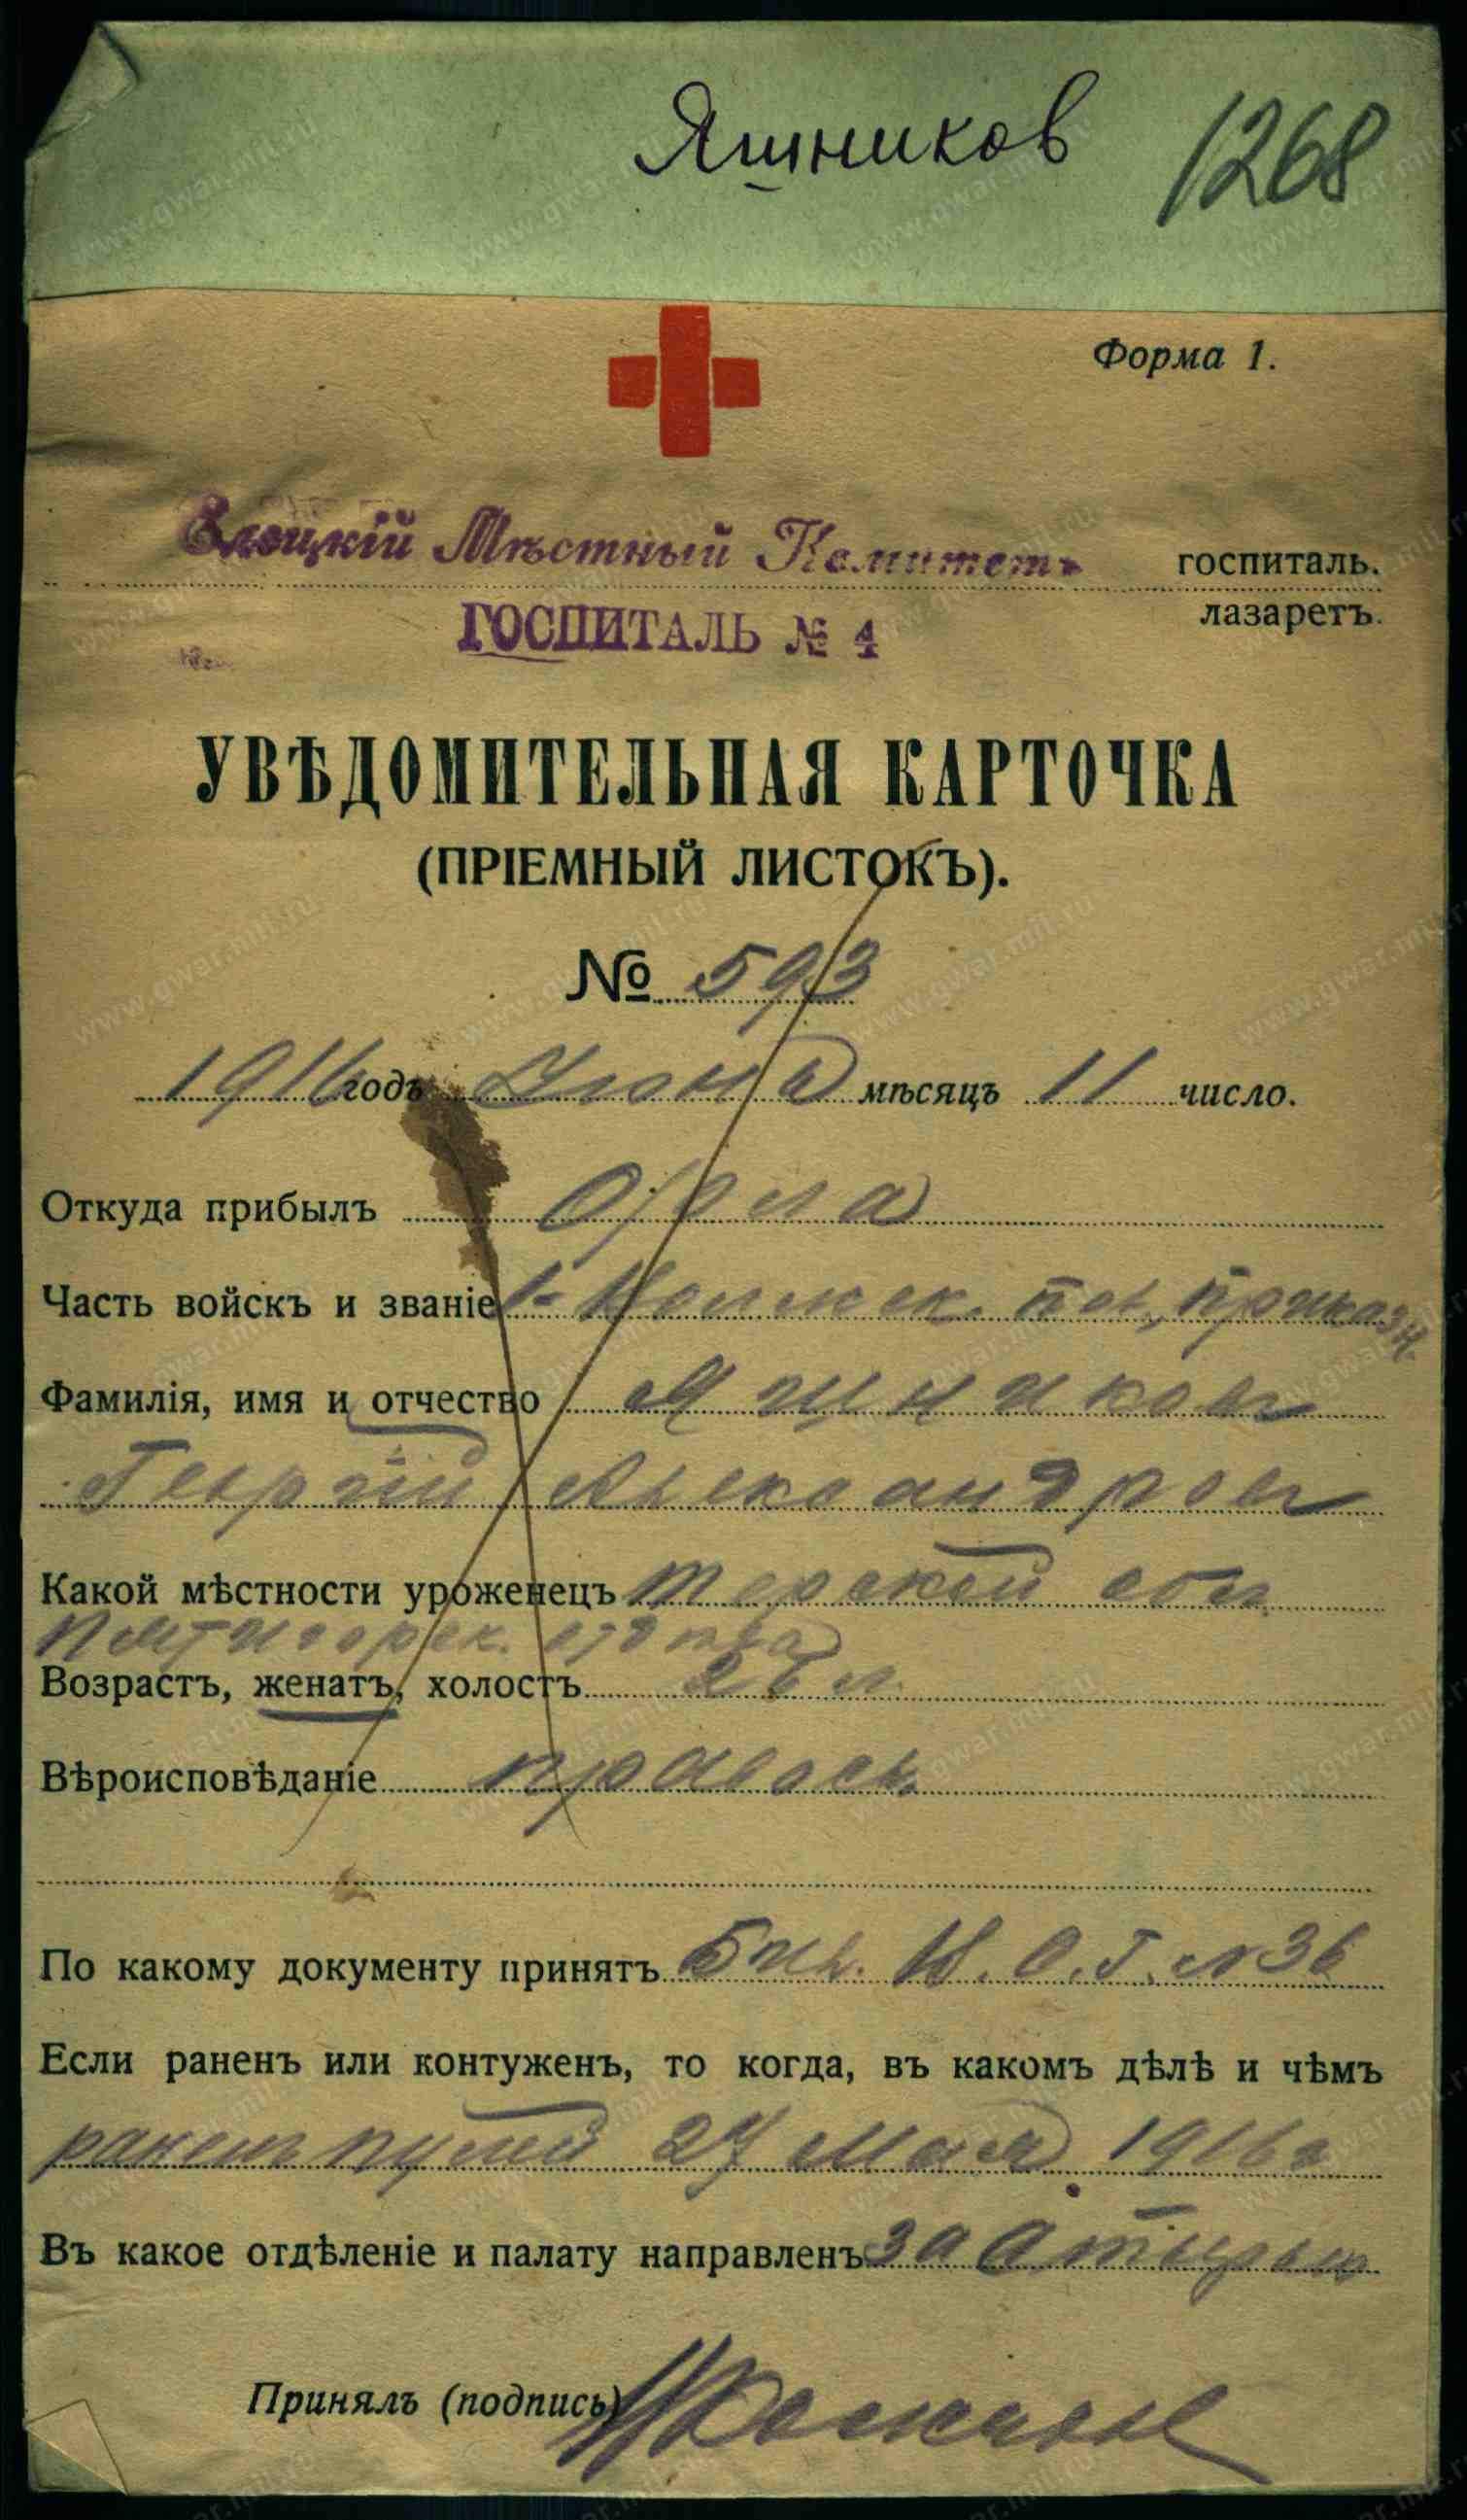 Яшников 1268
Форма 1.
Елецкій Мѣстный Комитетъ госпиталь.
лазаретъ.
ГОСПИТАЛЬ № 4
УВѢДОМИТЕЛЬНАЯ КАРТОЧКА
(ПРІЕМНЫЙ ЛИСТОКЪ).
№ 593
1916 годъ Іюня мѣсяцъ 11 число.
Откуда прибылъ Орла
Часть войскъ и званіе 1- Волжск. пол, приказн.
Фамилія, имя и отчество Яшниковъ
Георгій Александровъ
Какой мѣстности уроженецъ Терской обл.
Пятигорск. отдѣла
Возрастъ, женатъ, холостъ 26 л.
Вѣроисповѣданіе правосл.
По какому документу принятъ Бил. № 36
Если раненъ или контуженъ, то когда, въ какомъ дѣлѣ и чѣмъ
раненъ пулей 27 Мая 1916 г
Въ какое отдѣленіе и палату направленъ
Принялъ (подпись)
www.gwar.mil.ru